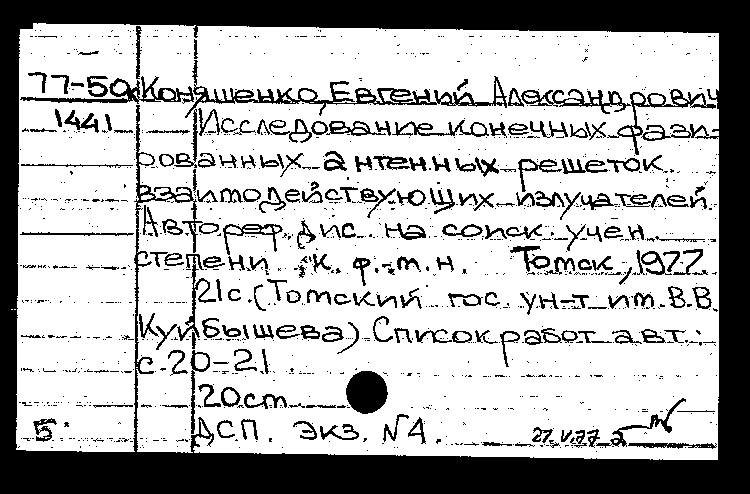 77-50к Коняшенко, Евгений Александрович
1441 Исследование конечных фази-
рованных антенных решеток
взаимодействующих излучателей.
Автореф. дис. на соиск. учен.
степени к. ф.-м. н. Томск, 1977.
21 с. (Томский гос. ун-т им. В.В.
Куйбышева) Список работ авт.:
с. 20-21.
20 cm.
5. ДСП. экз. N4. 27.V.77